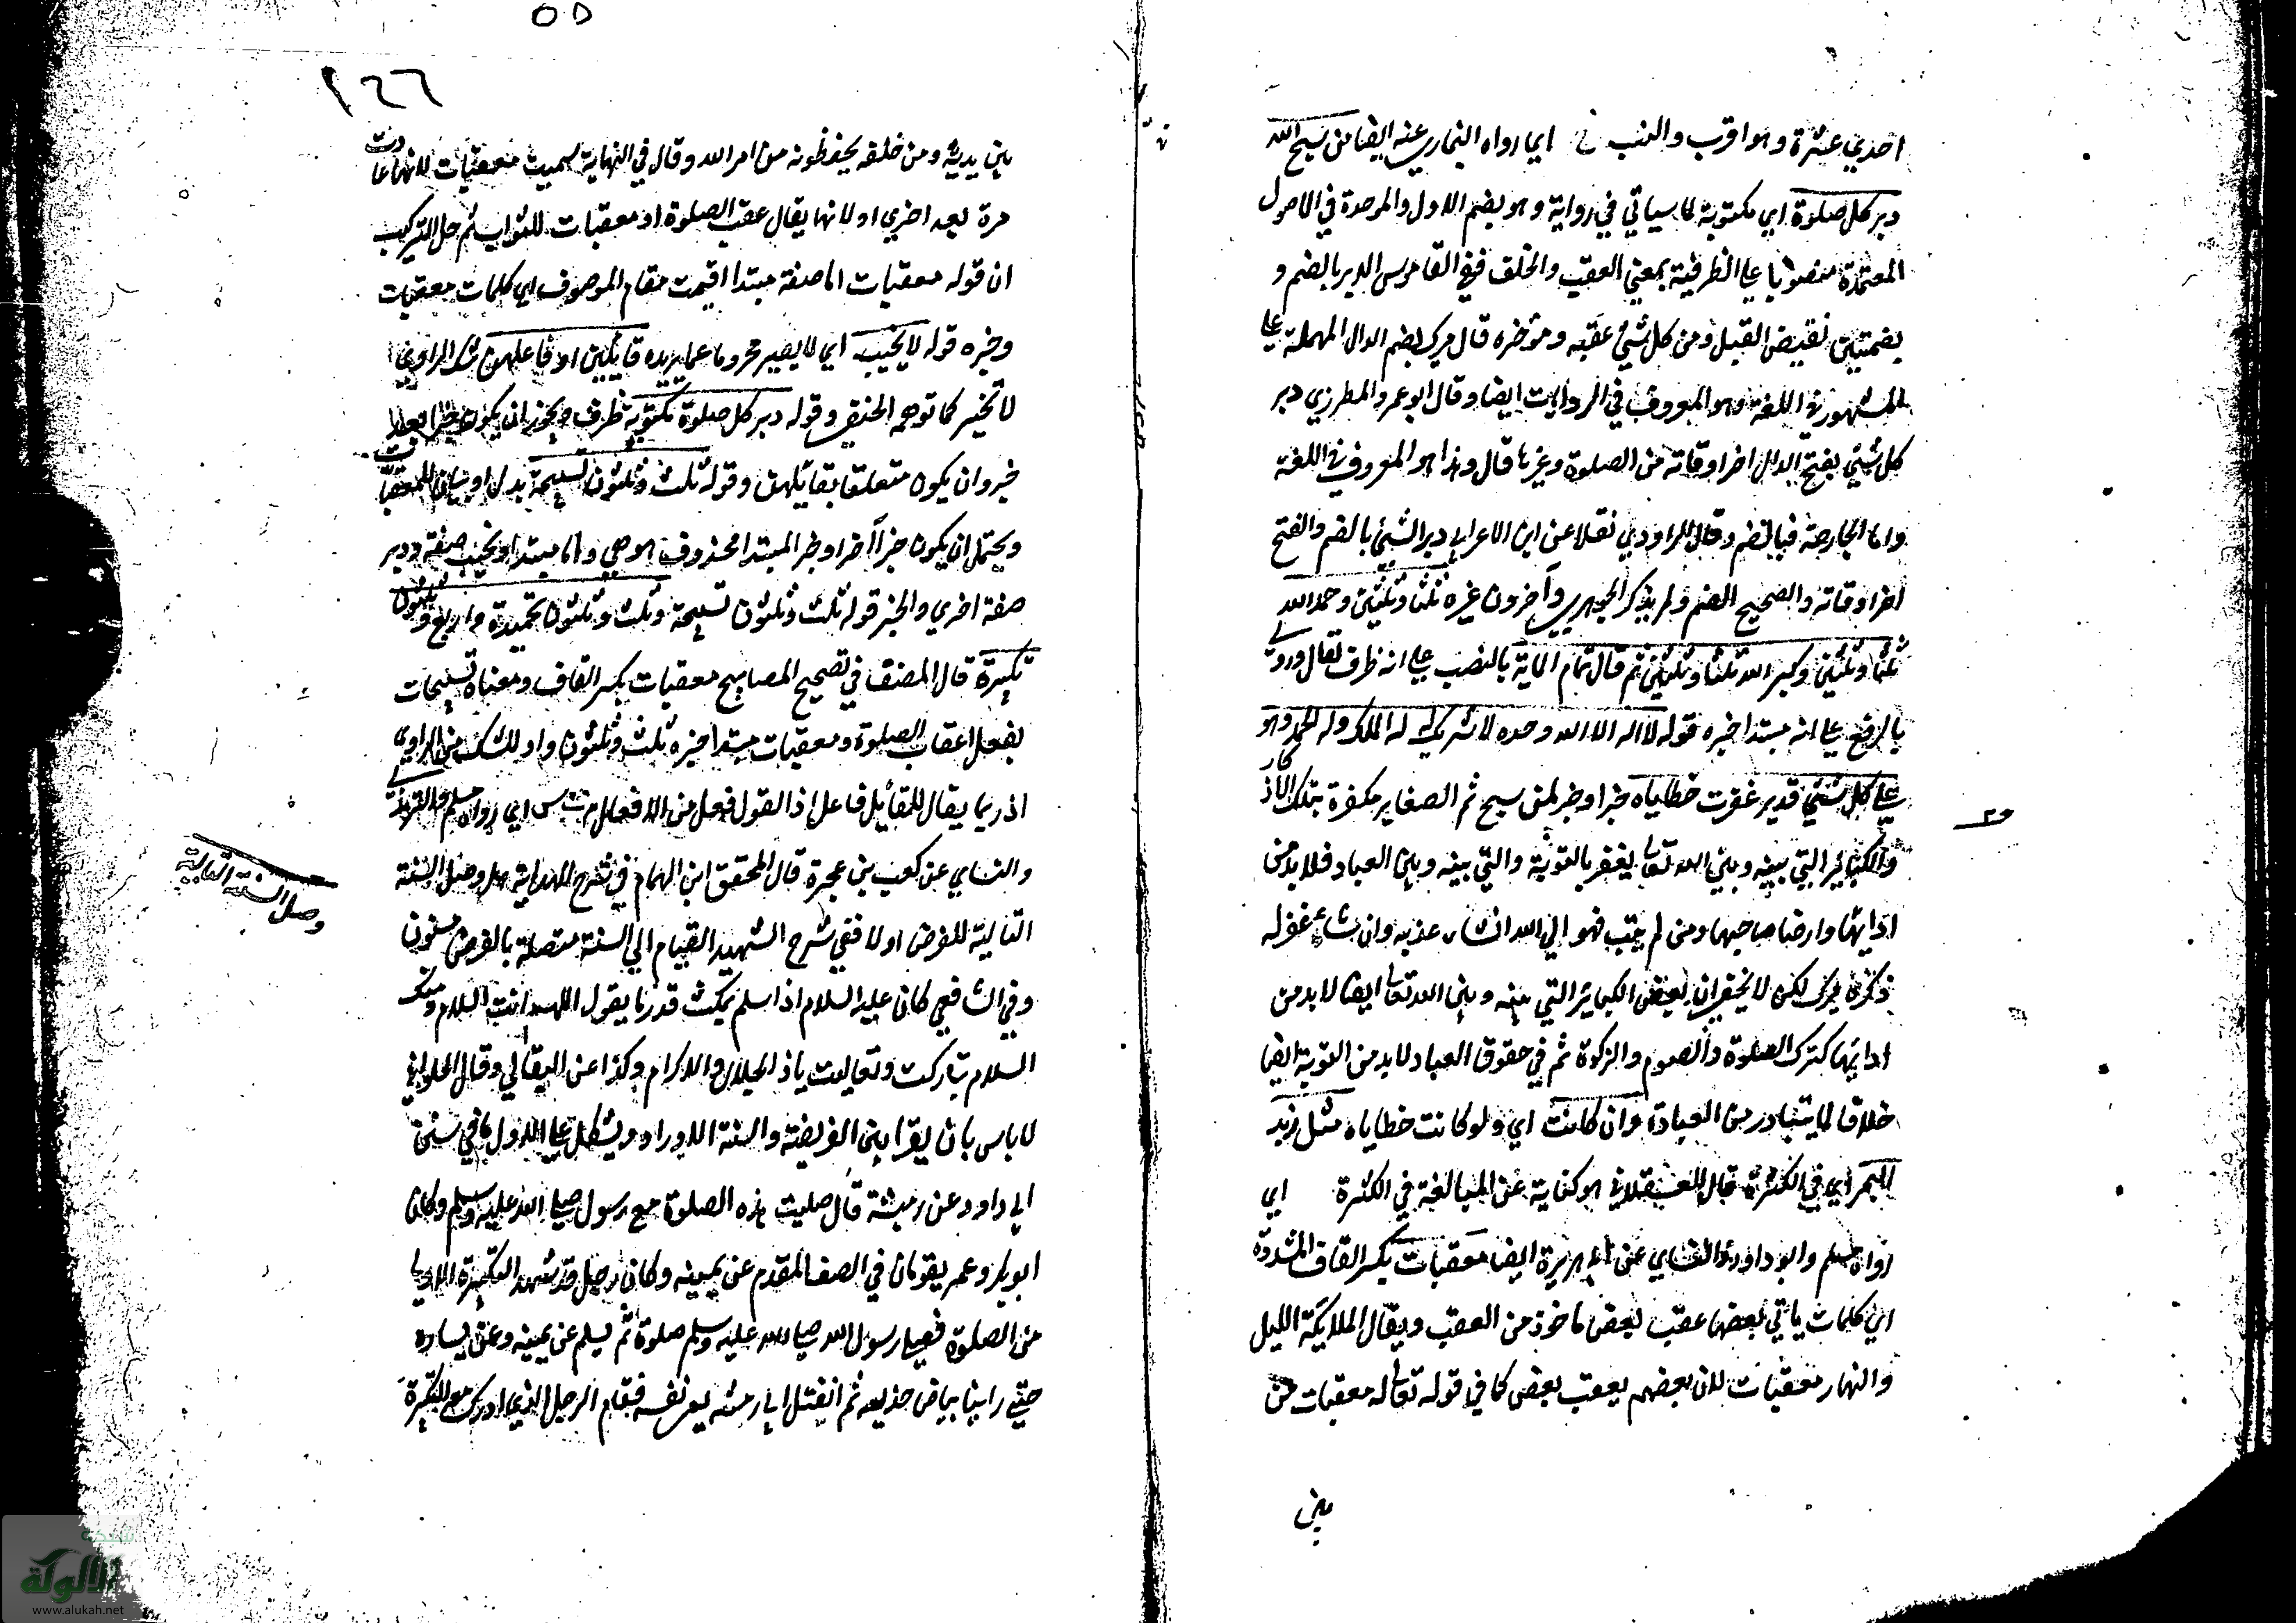 احدي عشرة وهو اقرب والنسب خ اي رواه البخاري عنه ايضا من سبح الله
دبر كل صلوة اي مكتوبة لما سياتي في رواية وهو بضم الاول والموحدة في الاصول
المعتمدة منصوبا علي الظرفية بمعني العقب والخلف ففي القاموس الدبر بالضم و
بضمتين نقيض القبل ومن كل شيء عقبه ومؤخره قال ميرك بضم الدال المهملة علي
المشهور في اللغة وهو المعروف في الروايات ايضا وقال ابو عمرو المطرزي دبر
كل شيئ بفتح الدال اخر اوقاته من الصلوة وغيرها قال وهذا هو المعروف في اللغة
واما الجارحة فبالضم وقال الداودي نقلا عن ابن الاعرابي دبر الشيئ بالضم والفتح
اخر اوقاته والصحيح الضم ولم يذكر الجوهري وآخرون غيره ثلثا وثلثين وحمد الله
ثلثا وثلثين وكبر الله ثلثا وثلثين ثم قال تمام الماية بالنصب علي انه ظرف لقال وروي
بالرفع علي انه مبتدا خبره قوله لا اله الا الله وحده لا شريك له له الملك وله الحمد وهو
علي كل شيئ قدير غفرت خطاياه خبر او خبر لمن سبح ثم الصغاير مكفرة بتلك الاذكار
والكباير التي بينه وبين الله تعالي يغفر بالتوبة والتي بينه وبين العباد فلا بد من
ادايها وارضا صاحبها ومن لم يتب فهو الي الله ان شاء عذبه وان شاء غفر له
ذكره ميرك لكن لا يخفي ان بعض الكبائر التي بينه وبين الله تعالي ايضا لا بد من
ادايها كترك الصلوة والصوم والزكوة ثم في حقوق العباد لا بد من التوبة ايضا
خلافا لما يتبادر من العبادة وان كانت اي ولو كانت خطاياه مثل زبد
البحر اي في الكثرة قال العسقلاني هو كناية عن المبالغة في الكثرة اي
رواه مسلم وابو داود والنساي عن ابي هريرة ايضا معقبات بكسر القاف المشددة
اي كلمات ياتي بعضها عقب بعض ماخوذ من العقب ويقال لملايكة الليل
والنهار معقبات لان بعضهم يعقب بعض كما في قوله تعالي له معقبات من
بين
١٢٦
بين يديه ومن خلفه يحفظونه من امر الله وقال في النهاية سميت معقبات لانها عادت
مرة بعد اخري او لانها يقال عقب الصلوة او معقبات للثواب ثم حل التركيب
ان قوله معقبات اما صفة مبتدا اقيمت مقام الموصوف اي كلمات معقبات
وخبره قوله لا يخيب اي لا يصير محروما عما يريده قايلهن او فاعلهن شك الراوي
لا تخيير كما توهم الحنفي وقوله دبر كل صلوة مكتوبة ظرف ويجوز ان يكون خبرا بعد
خبر وان يكون متعلقا بقايلهن وقوله ثلث وثلثون تسبيحة بدل او بيان للمعقبات
ويحتمل ان يكون خبرا آخر او خبر المبتدا محذوف هو هي واما مبتدا ويخيب صفته ودبر
صفة اخري والخبر قوله ثلث وثلثون تسبيحة وثلث وثلثون تحميدة واربع وثلثون
تكبيرة قال المصنف في تصحيح المصابيح معقبات بكسر القاف ومعناه تسبيحات
يفعل اعقاب الصلوة ومعقبات مبتدا خبره ثلث وثلثون واو للشك من الراوي
اذ ربما يقال للقايل فاعل اذ القول فعل من الافعال م ت س اي رواه مسلم والترمذي
والنساي عن كعب بن عجرة قال المحقق ابن الهمام في شرح الهداية هل وصل السنة
التالية للفرض اولا ففي شرح الشهيد القيام الي السنة متصلة بالفرض مسنون
وفي الشافعي كان عليه السلام اذا سلم يمكث قدر ما يقول اللهم انت السلام ومنك
السلام تباركت وتعاليت ياذا الجلال والاكرام وكذا عن البقالي وقال الحلواني
لا باس بان يقرا بين الفريضة والسنة الاوراد ويشكل علي الاول ما في سنن
ابي داود عن رمثة قال صليت هذه الصلوة مع رسول صلي الله عليه وسلم وكان
ابو بكر وعمر يقومان في الصف المقدم عن يمينه وكان رجل قد شهد التكبيرة الاولي
من الصلوة فصلي رسول الله صلي الله عليه وسلم صلوة ثم سلم عن يمينه وعن يساره
حتي راينا بياض خديه ثم انفتل ابي رمثه يعني نفسه فقام الرجل الذي ادرك معه التكبيرة
وصل السنة التالية
شبكة
الألوكة
www.alukah.net